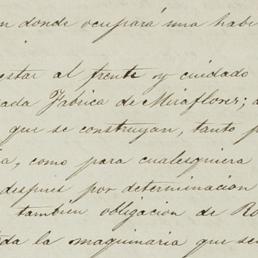 n donde ocupará una habi
estar al frente y cuidado
ada Fabrica de Miraflores; a
que se construyan, tanto p
a, como para cualesquiera
despues por determinacion
tambien obligacion de Ro
da la maquinaria que se